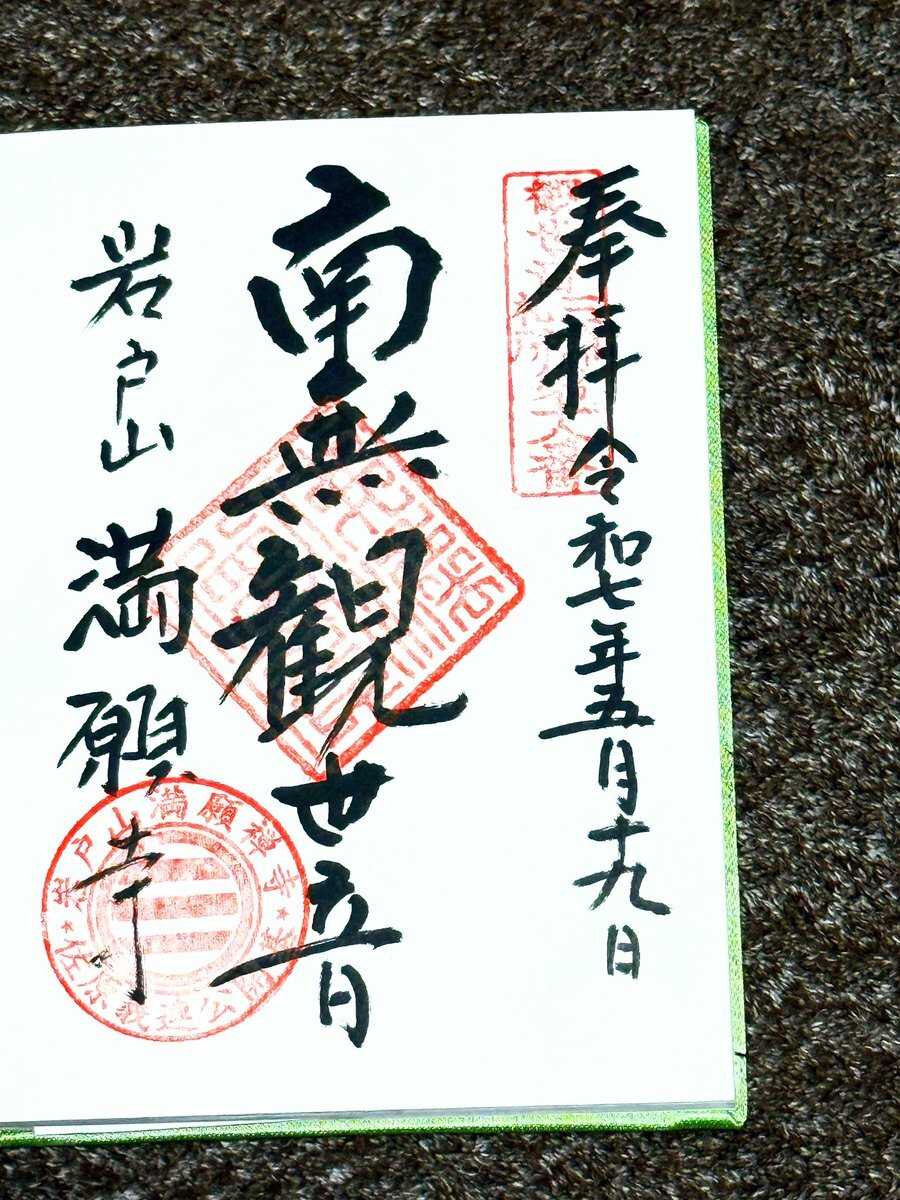 奉拝 令和七年五月十九日
南無観世音
岩戸山 満願寺
岩戸山満願禅寺
佐原義連公